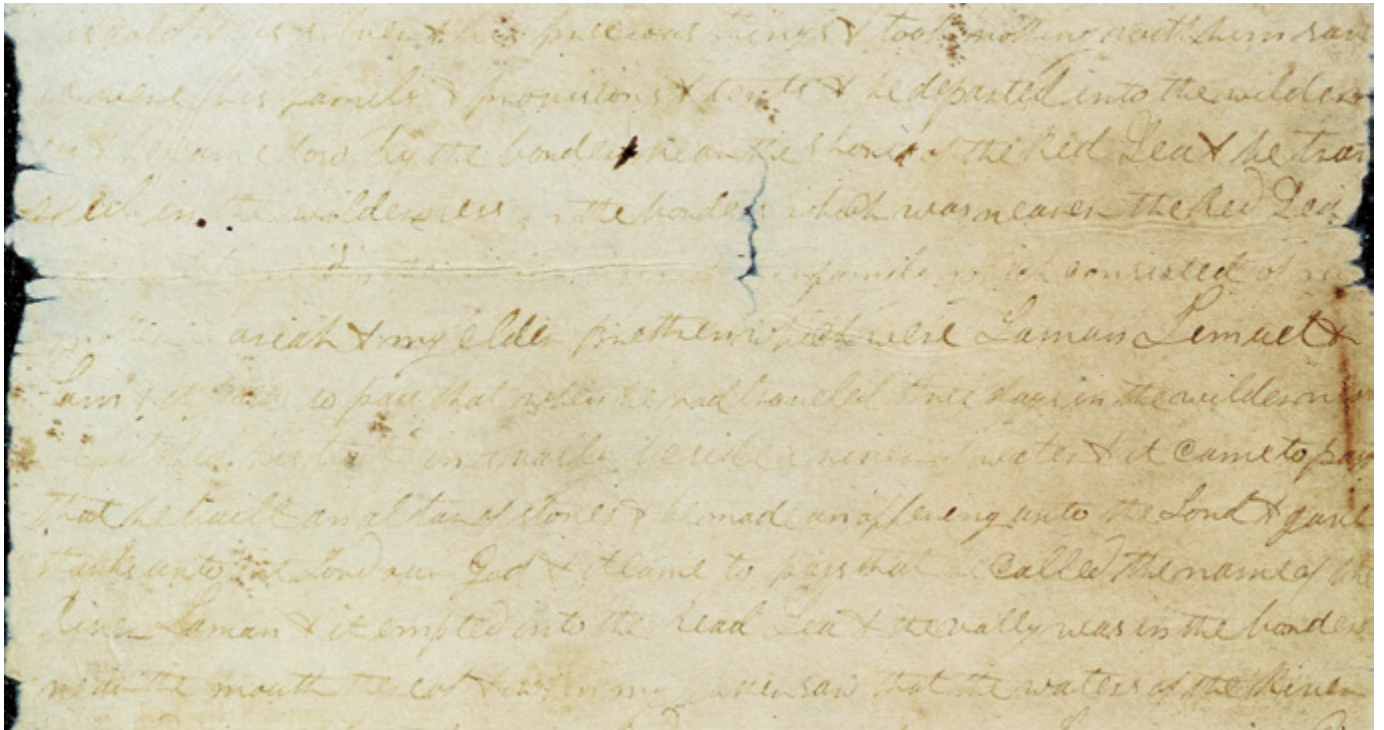 his gold & his silver & his precious things & took nothing with him save
it were his family & provisions & tents & he departed into the wilder
ness & he came down by the borders near the shore of the Red Sea & he trav
in the wilderness in the borders which was nearer the Red Sea
family which consisted of my
ariah & my elder brethren which were Laman Lemuel &
Sam & it came to pass that when he had traveled three days in the wilderness
he pitched his tent in a vally beside a river of water & it came to pass
that he built an altar of stones & he made an offering unto the Lord & gave
thanks unto the Lord our God & it came to pass that he called the name of the
river Laman & it emptied into the read Sea & the vally was in the borders
near the mouth thereof & when my father saw that the waters of the River